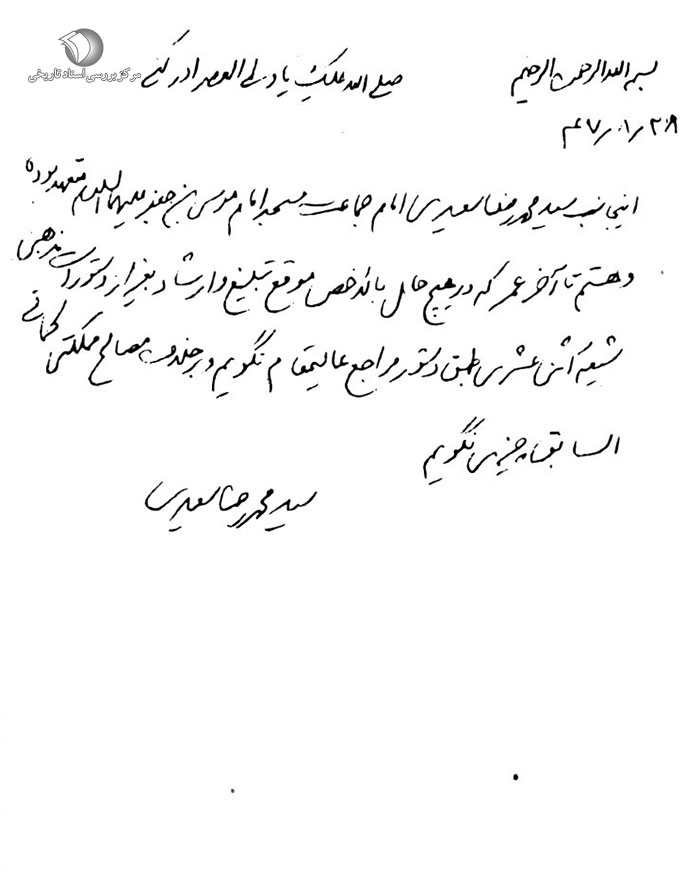 مرکز بررسی اسناد تاریخی
بسم الله الرحمن الرحیم صلی الله علیک یا ولی العصر ادرکنی
۴۷٫۱٫۲۸
اینجانب سید محمدرضا سعیدی امام جماعت مسجد امام موسی بن جعفر علیهما السلام متعهد بوده
و هستم تا آخر عمر که در هیچ حال بالاخص موقع تبلیغ و ارشاد بغیر از دستورات مذهبی
شیعه اثنی عشری طبق دستور مراجع عالیمقام نگویم و بر خلاف مصالح مملکتی کما فی
السابق چیزی نگویم
سید محمدرضا سعیدی